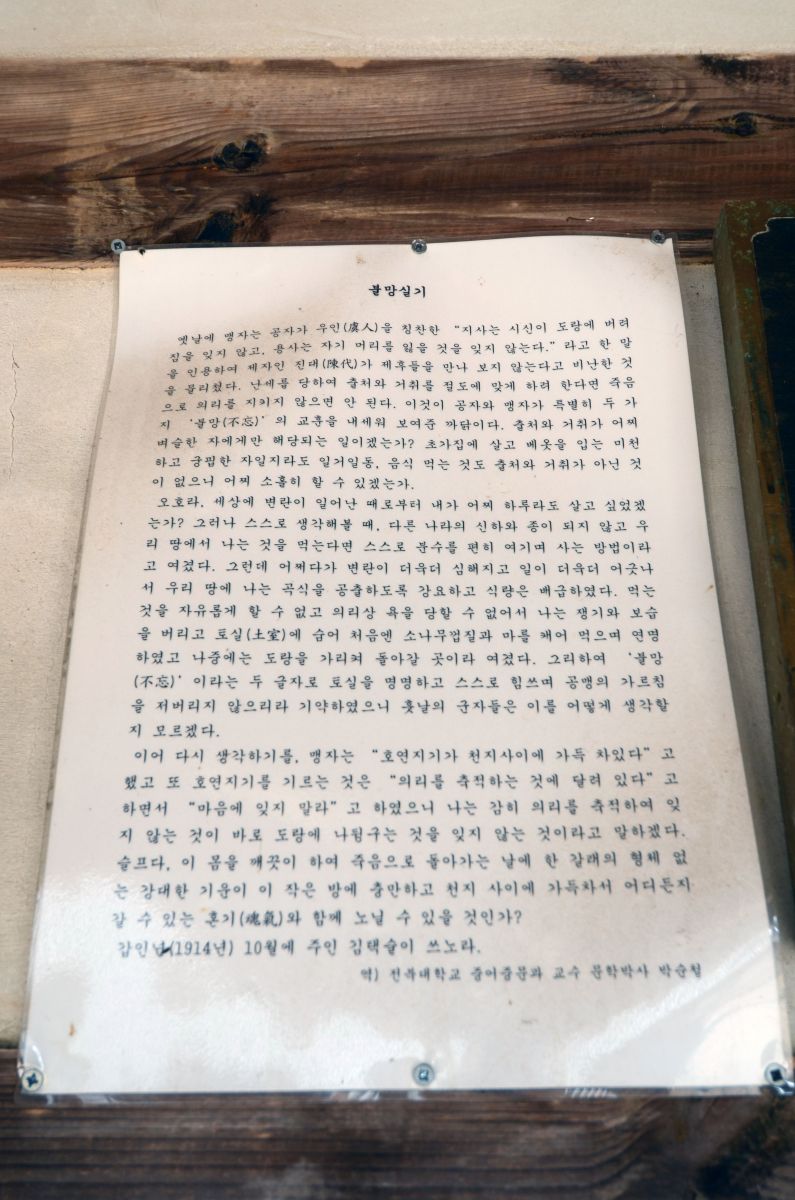 불망실기
옛날에 맹자는 공자가 우인(虞人)을 칭찬한 “지사는 시신이 도랑에 버려
짐을 잊지 않고, 용사는 자기 머리를 잃을 것을 잊지 않는다.” 라고 한 말
을 인용하여 제자인 진대(陳代)가 제후들을 만나 보지 않는다고 비난한 것
을 물리쳤다. 난세를 당하여 출처와 거취를 절도에 맞게 하려 한다면 죽음
으로 의리를 지키지 않으면 안 된다. 이것이 공자와 맹자가 특별히 두 가
지 ‘불망(不忘)’ 의 교훈을 내세워 보여준 까닭이다. 출처와 거취가 어찌
벼슬한 자에게만 해당되는 일이겠는가? 초가집에 살고 베옷을 입는 미천
하고 궁핍한 자일지라도 일거일동, 음식 먹는 것도 출처와 거취가 아닌 것
이 없으니 어찌 소홀히 할 수 있겠는가.
오호라, 세상에 변란이 일어난 때로부터 내가 어찌 하루라도 살고 싶었겠
는가? 그러나 스스로 생각해볼 때, 다른 나라의 신하와 종이 되지 않고 우
리 땅에서 나는 것을 먹는다면 스스로 분수를 편히 여기며 사는 방법이라
고 여겼다. 그런데 어쩌다가 변란이 더욱더 심해지고 일이 더욱더 어긋나
서 우리 땅에 나는 곡식을 공출하도록 강요하고 식량은 배급하였다. 먹는
것을 자유롭게 할 수 없고 의리상 욕을 당할 수 없어서 나는 쟁기와 보습
을 버리고 토실(土室)에 숨어 처음엔 소나무껍질과 마를 캐어 먹으며 연명
하였고 나중에는 도랑을 가리켜 돌아갈 곳이라 여겼다. 그리하여 ‘불망
(不忘)’ 이라는 두 글자로 토실을 명명하고 스스로 힘쓰며 공맹의 가르침
을 저버리지 않으리라 기약하였으니 훗날의 군자들은 이를 어떻게 생각할
지 모르겠다.
이어 다시 생각하기를, 맹자는 “호연지기가 천지사이에 가득 차있다” 고
했고 또 호연지기를 기르는 것은 “의리를 축적하는 것에 달려 있다” 고
하면서 “마음에 잊지 말라” 고 하였으니 나는 감히 의리를 축적하여 잊
지 않는 것이 바로 도랑에 나뒹구는 것을 잊지 않는 것이라고 말하겠다.
슬프다, 이 몸을 깨끗이 하여 죽음으로 돌아가는 날에 한 갈래의 형체 없
는 강대한 기운이 이 작은 방에 충만하고 천지 사이에 가득차서 어디든지
갈 수 있는 혼기(魂氣)와 함께 노닐 수 있을 것인가?
갑인년(1914년) 10월에 주인 김택술이 쓰노라.
역) 전북대학교 중어중문과 교수 문학박사 박순철